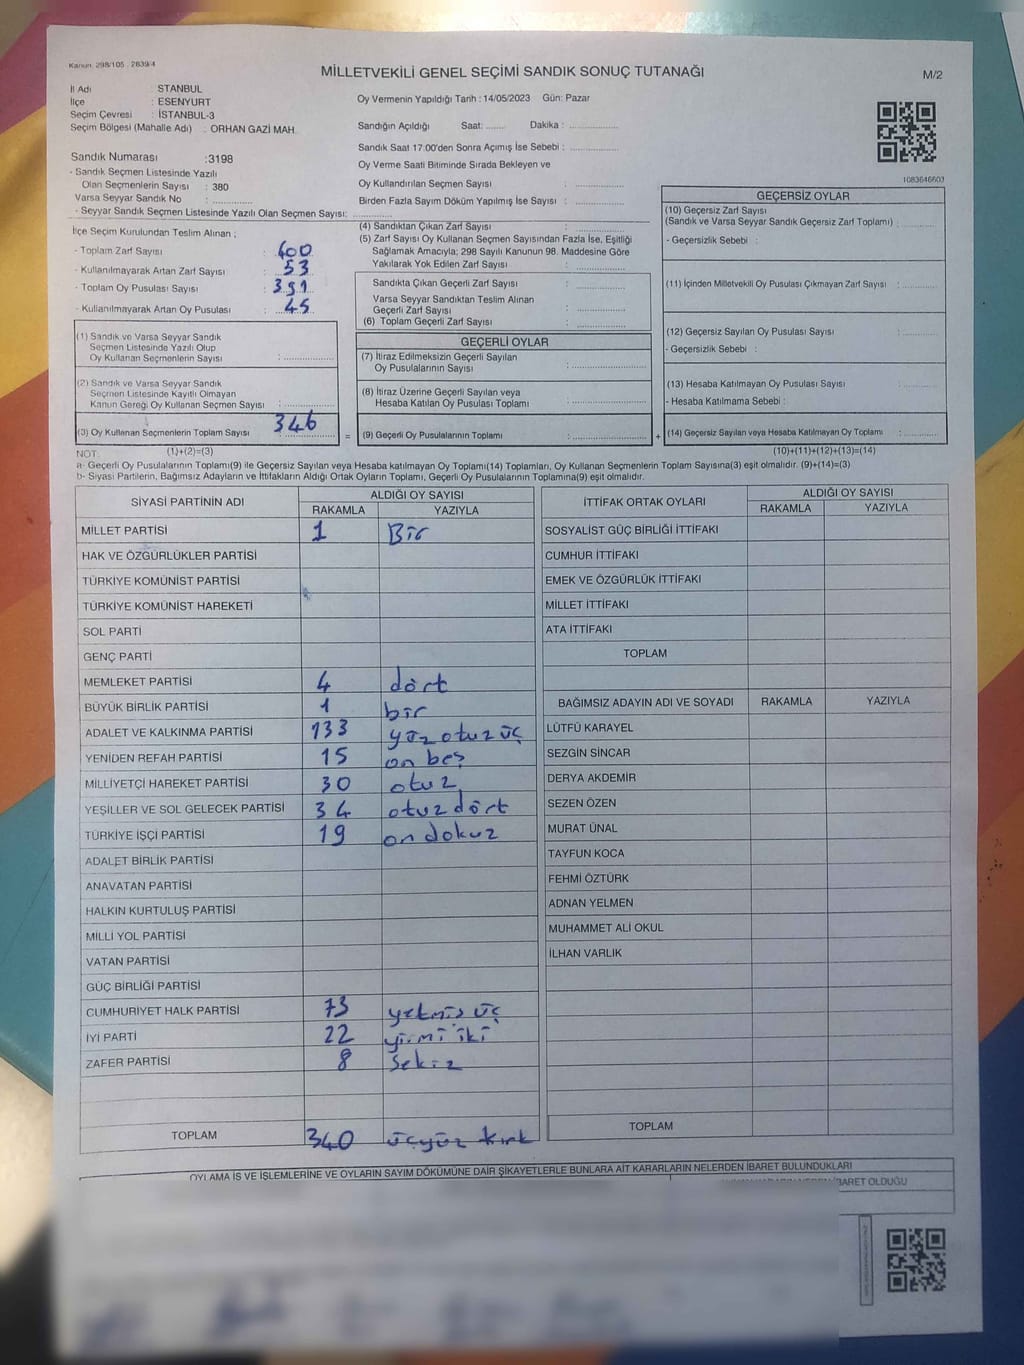 Kanun: 298/105 , 2839/4
MİLLETVEKİLİ GENEL SEÇİMİ SANDIK SONUÇ TUTANAĞI
M/2
İl Adı : STANBUL
İlçe : ESENYURT
Seçim Çevresi : İSTANBUL-3
Seçim Bölgesi (Mahalle Adı) : ORHAN GAZİ MAH.
Sandık Numarası :3198
- Sandık Seçmen Listesinde Yazılı
Olan Seçmenlerin Sayısı : 380
Varsa Seyyar Sandık No : ..............
- Seyyar Sandık Seçmen Listesinde Yazılı Olan Seçmen Sayısı: ..............
Oy Vermenin Yapıldığı Tarih : 14/05/2023 Gün: Pazar
Sandığın Açıldığı Saat: ....... Dakika : ..............
Sandık Saat 17.00'den Sonra Açımış İse Sebebi : ..............
Oy Verme Saati Bitiminde Sırada Bekleyen ve
Oy Kullandırılan Seçmen Sayısı : ..............
Birden Fazla Sayım Döküm Yapılmış İse Sayısı : ..............
1083646603
İlçe Seçim Kurulundan Teslim Alınan ;
- Toplam Zarf Sayısı : 400
- Kullanılmayarak Artan Zarf Sayısı : 53
- Toplam Oy Pusulası Sayısı : 391
- Kullanılmayarak Artan Oy Pusulası : 45
(1) Sandık ve Varsa Seyyar Sandık
Seçmen Listesinde Yazılı Olup
Oy Kullanan Seçmenlerin Sayısı : ..............
(2) Sandık ve Varsa Seyyar Sandık
Seçmen Listesinde Kayıtlı Olmayan
Kanun Gereği Oy Kullanan Seçmen Sayısı : ..............
(3) Oy Kullanan Seçmenlerin Toplam Sayısı : 346
(4) Sandıktan Çıkan Zarf Sayısı : ..............
(5) Zarf Sayısı Oy Kullanan Seçmen Sayısından Fazla İse, Eşitliği
Sağlamak Amacıyla; 298 Sayılı Kanunun 98. Maddesine Göre
Yakılarak Yok Edilen Zarf Sayısı : ..............
Sandıkta Çıkan Geçerli Zarf Sayısı : ..............
Varsa Seyyar Sandıktan Teslim Alınan
Geçerli Zarf Sayısı : ..............
(6) Toplam Geçerli Zarf Sayısı : ..............
GEÇERLİ OYLAR
(7) İtiraz Edilmeksizin Geçerli Sayılan
Oy Pusulalarının Sayısı : ..............
(8) İtiraz Üzerine Geçerli Sayılan veya
Hesaba Katılan Oy Pusulası Toplamı : ..............
= (9) Geçerli Oy Pusulalarının Toplamı : ..............
GEÇERSİZ OYLAR
(10) Geçersiz Zarf Sayısı
(Sandık ve Varsa Seyyar Sandık Geçersiz Zarf Toplamı) : ..............
- Geçersizlik Sebebi :
(11) İçinden Milletvekili Oy Pusulası Çıkmayan Zarf Sayısı : ..............
(12) Geçersiz Sayılan Oy Pusulası Sayısı : ..............
- Geçersizlik Sebebi :
(13) Hesaba Katılmayan Oy Pusulası Sayısı : ..............
- Hesaba Katılmama Sebebi :
+ (14) Geçersiz Sayılan veya Hesaba Katılmayan Oy Toplamı : ..............
NOT: (1)+(2)=(3) (10)+(11)+(12)+(13)=(14)
a- Geçerli Oy Pusulalarının Toplamı(9) ile Geçersiz Sayılan veya Hesaba katılmayan Oy Toplamı(14) Toplamları, Oy Kullanan Seçmenlerin Toplam Sayısına(3) eşit olmalıdır. (9)+(14)=(3)
b- Siyasi Partilerin, Bağımsız Adayların ve İttifakların Aldığı Ortak Oyların Toplamı, Geçerli Oy Pusulalarının Toplamına(9) eşit olmalıdır.
SİYASİ PARTİNİN ADI ALDIĞI OY SAYISI
RAKAMLA YAZIYLA
MİLLET PARTİSİ 1 Bir
HAK VE ÖZGÜRLÜKLER PARTİSİ
TÜRKİYE KOMÜNİST PARTİSİ
TÜRKİYE KOMÜNİST HAREKETİ
SOL PARTİ
GENÇ PARTİ
MEMLEKET PARTİSİ 4 dört
BÜYÜK BİRLİK PARTİSİ 1 bir
ADALET VE KALKINMA PARTİSİ 133 yüz otuz üç
YENİDEN REFAH PARTİSİ 15 on beş
MİLLİYETÇİ HAREKET PARTİSİ 30 otuz
YEŞİLLER VE SOL GELECEK PARTİSİ 34 otuz dört
TÜRKİYE İŞÇİ PARTİSİ 19 on dokuz
ADALET BİRLİK PARTİSİ
ANAVATAN PARTİSİ
HALKIN KURTULUŞ PARTİSİ
MİLLİ YOL PARTİSİ
VATAN PARTİSİ
GÜÇ BİRLİĞİ PARTİSİ
CUMHURİYET HALK PARTİSİ 73 yetmis üç
İYİ PARTİ 22 yirmi iki
ZAFER PARTİSİ 8 Sekiz
TOPLAM 340 üçyüz kırk
İTTİFAK ORTAK OYLARI ALDIĞI OY SAYISI
RAKAMLA YAZIYLA
SOSYALİST GÜÇ BİRLİĞİ İTTİFAKI
CUMHUR İTTİFAKI
EMEK VE ÖZGÜRLÜK İTTİFAKI
MİLLET İTTİFAKI
ATA İTTİFAKI
TOPLAM
BAĞIMSIZ ADAYIN ADI VE SOYADI RAKAMLA YAZIYLA
LÜTFÜ KARAYEL
SEZGİN SİNCAR
DERYA AKDEMİR
SEZEN ÖZEN
MURAT ÜNAL
TAYFUN KOCA
FEHMİ ÖZTÜRK
ADNAN YELMEN
MUHAMMET ALİ OKUL
İLHAN VARLIK
TOPLAM
OYLAMA İŞ VE İŞLEMLERİNE VE OYLARIN SAYIM DÖKÜMÜNE DAİR ŞİKAYETLERLE BUNLARA AİT KARARLARIN NELERDEN İBARET BULUNDUKLARI
İBARET OLDUĞU